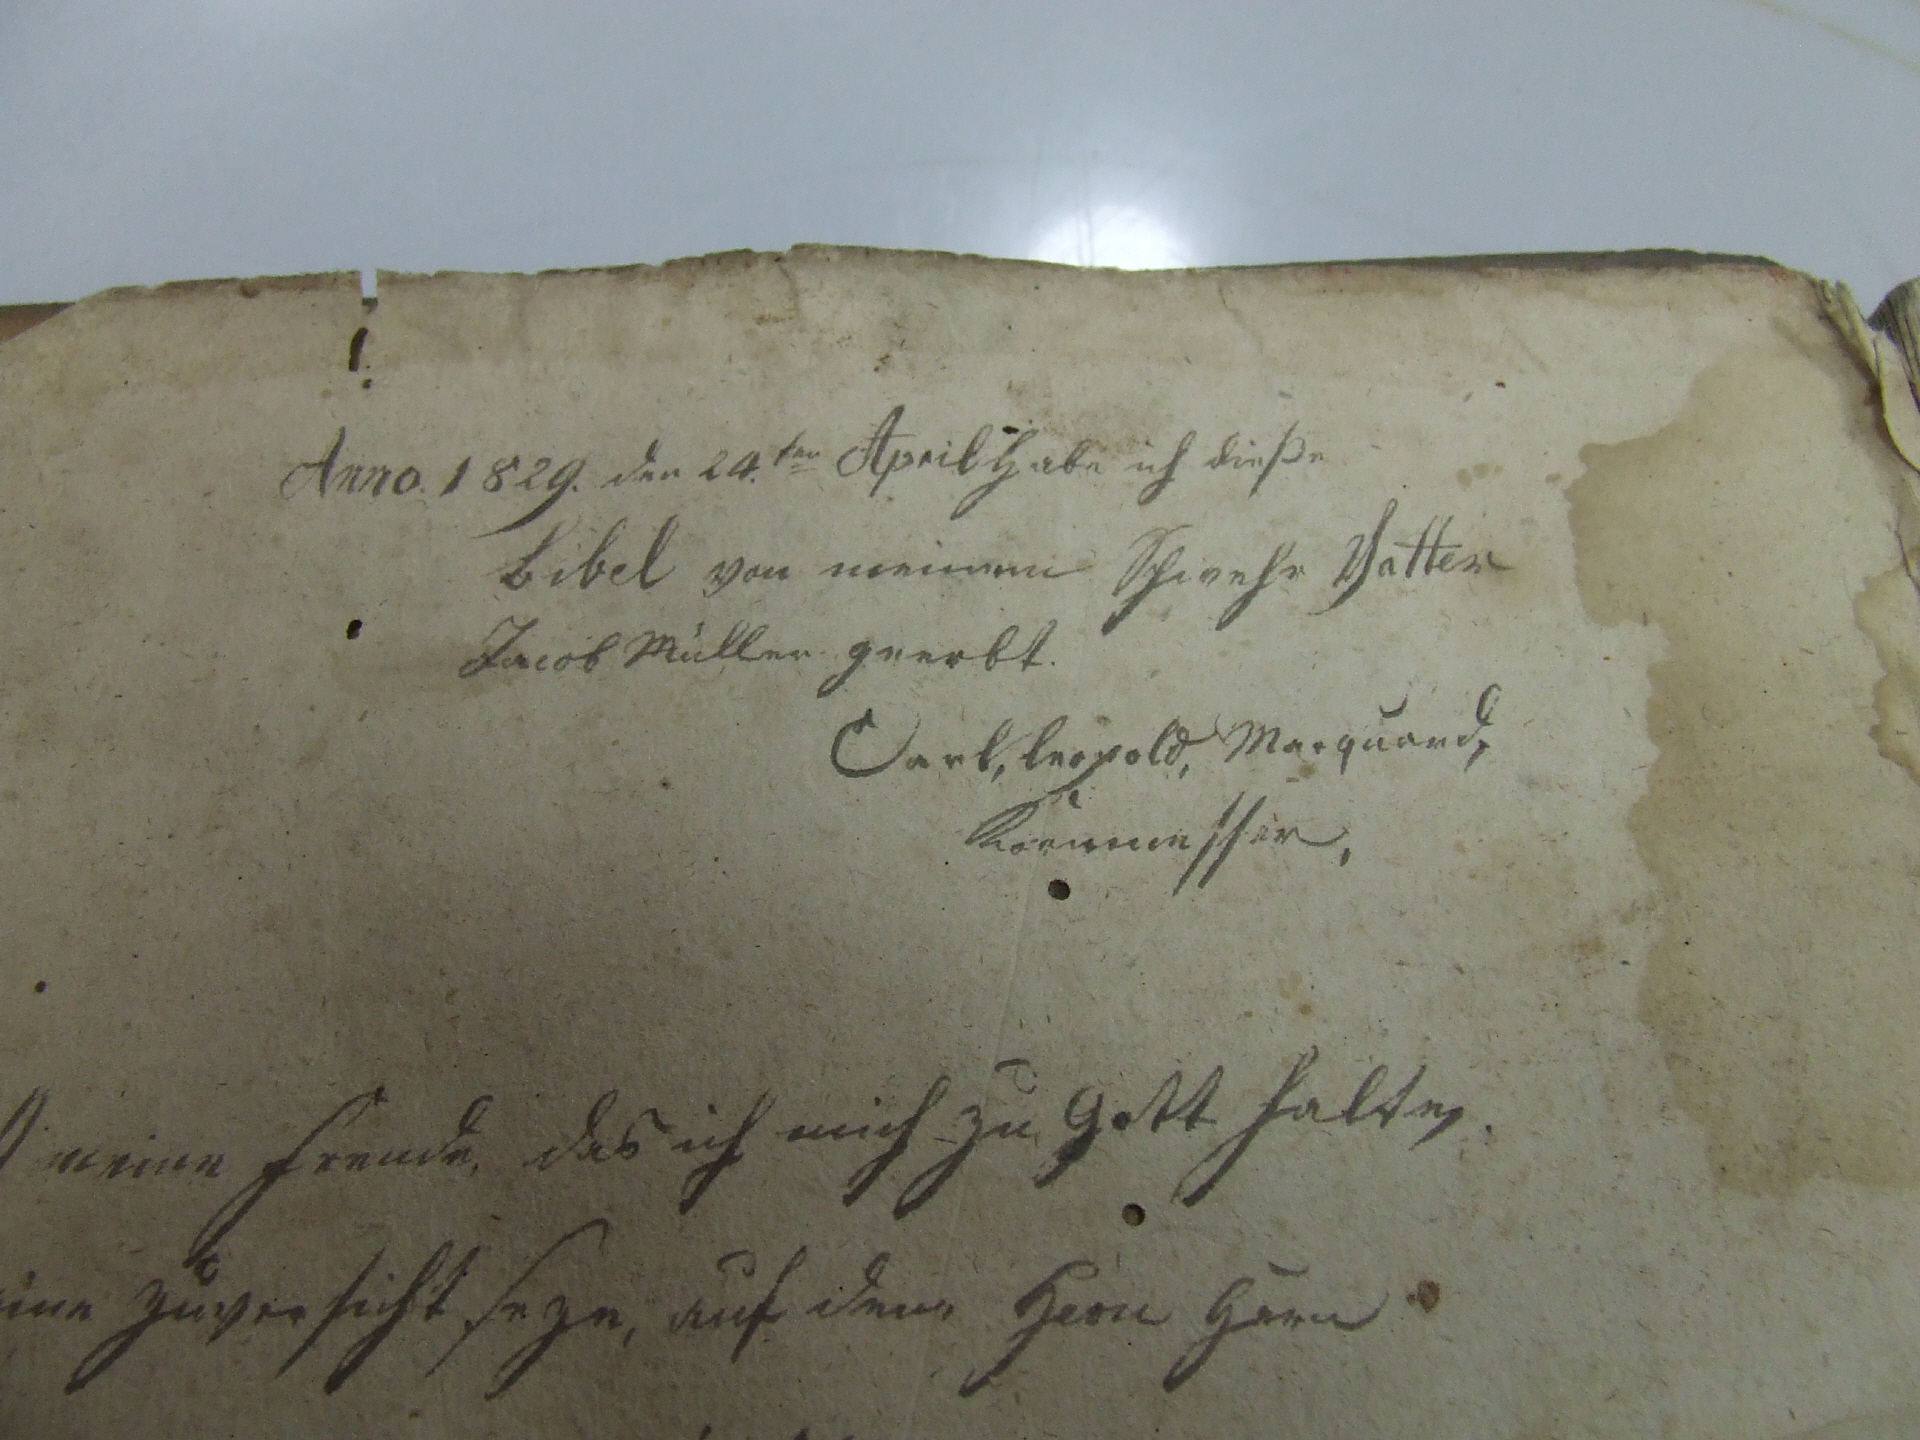 Anno. 1829. den 24.ten April Habe ich dieße
Bibel von meinem Schwehr Vatter
Jacob Müller geerbt.
Carl, Leopold, Marquard,
Kornmesser,
meine Freude, das ich mich zu Gott halte,
ine Zuversicht seze, auf den Hern Hern